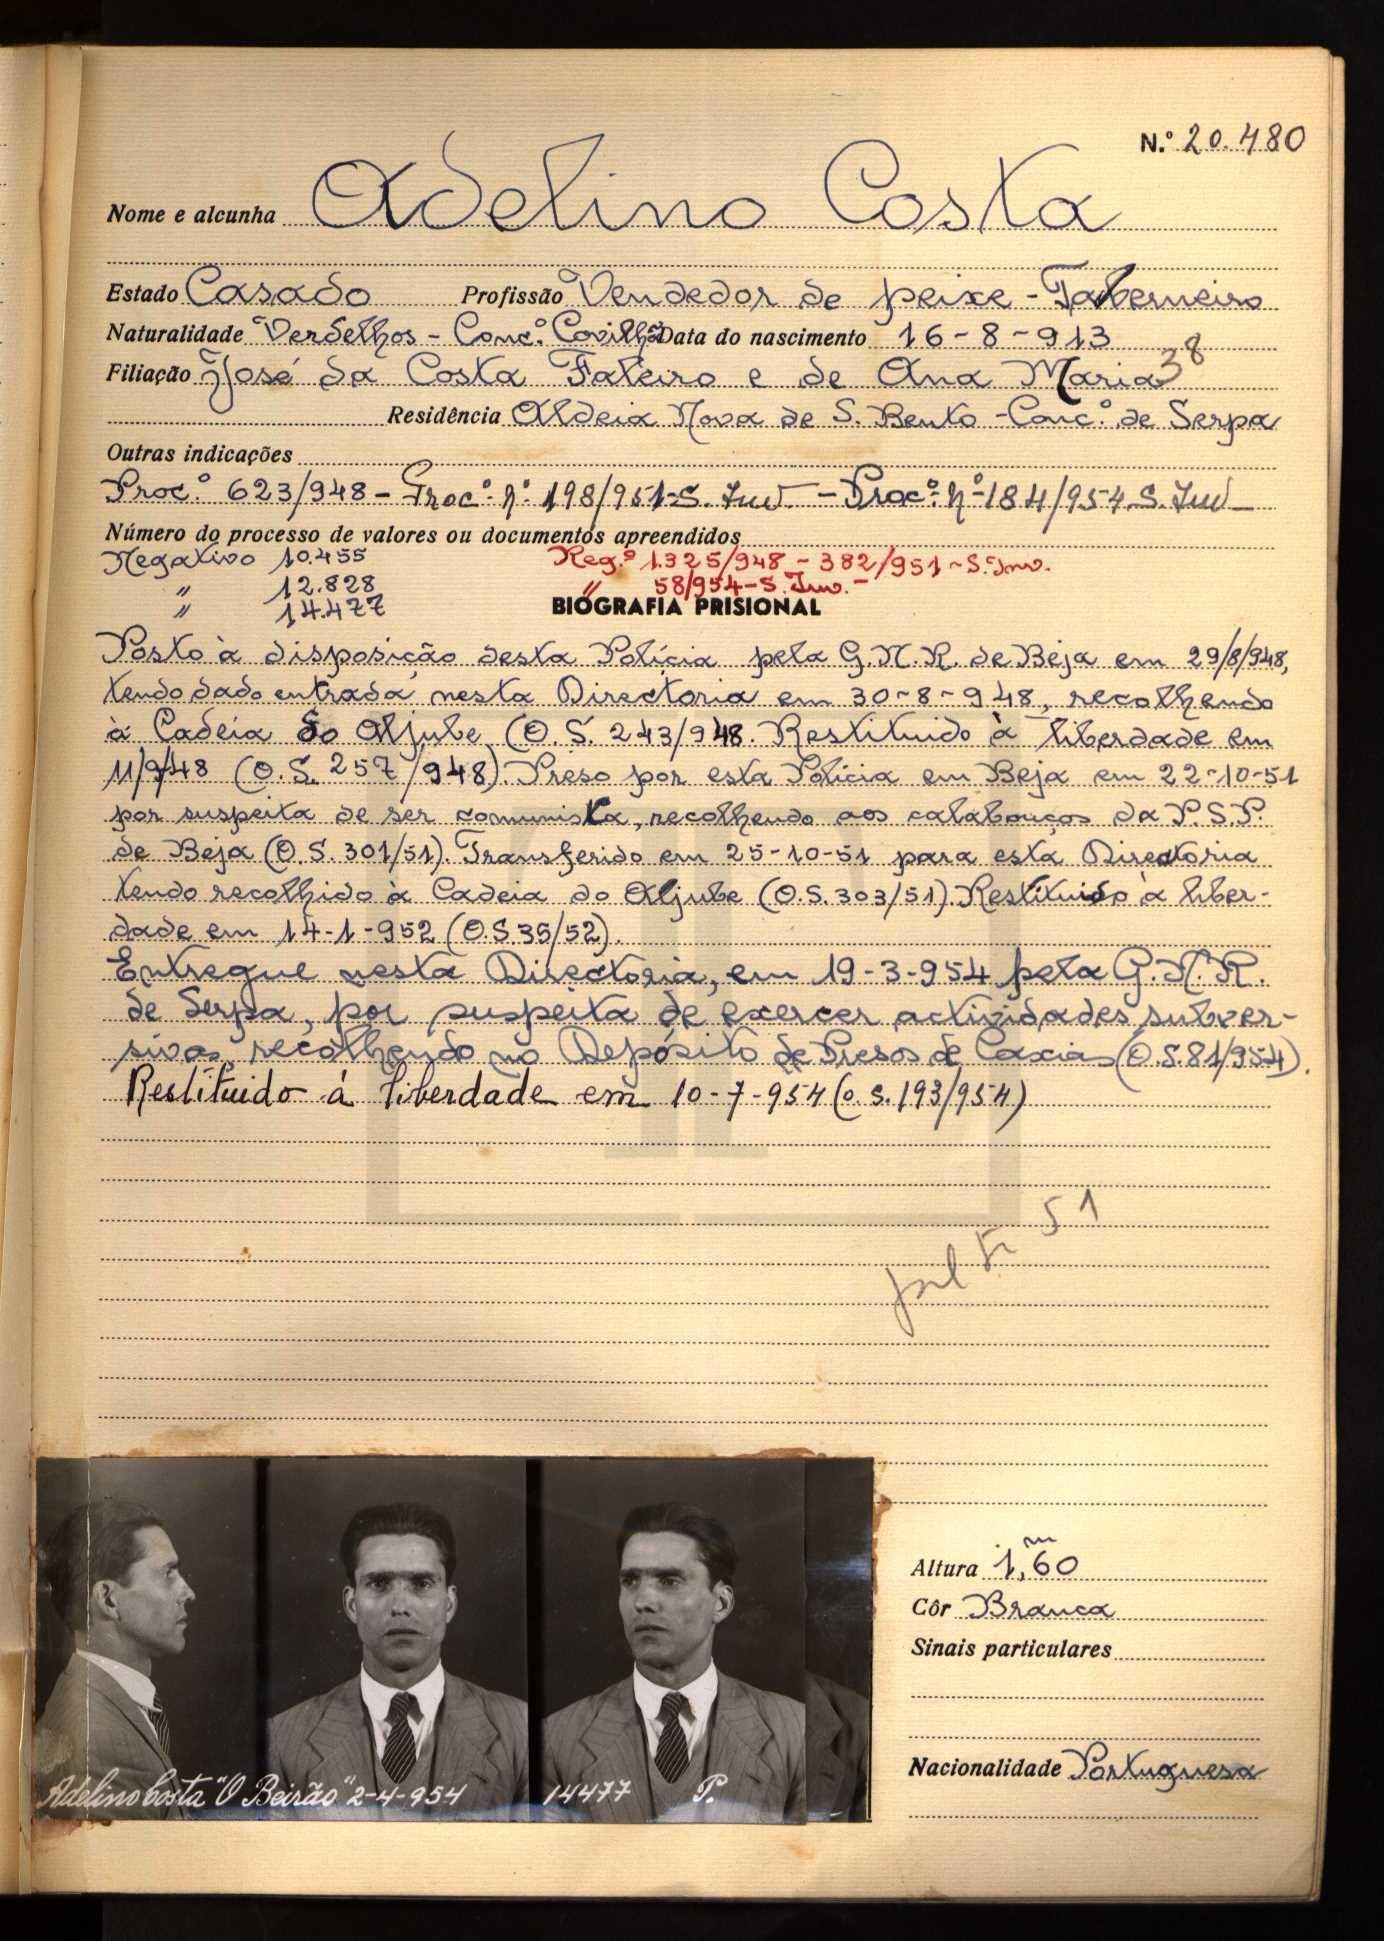 N.º 20.480
Nome e alcunha Adelino Costa
Estado Casado Profissão Vendedor de peixe - Taberneiro
Naturalidade Verdelhos - Conc.º Covilhã Data do nascimento 16-8-913
Filiação José da Costa Fateiro e de Ana Maria 38
Residência Aldeia Nova de S. Bento - Conc.º de Serpa
Outras indicações
Proc.º 623/948 - Proc.º nº 198/951-S. Inv. - Proc.º nº 184/954 S. Inv.
Número do processo de valores ou documentos apreendidos
Negativo 10.455 Reg.º 1.325/948 - 382/951 - S. Inv.
" 12.828 " 58/954 - S. Inv. -
" 14.477
BIOGRAFIA PRISIONAL
Posto à disposição desta Polícia pela G.N.R. de Beja em 29/8/948,
tendo dado entrada nesta Directoria em 30-8-948, recolhendo
à Cadeia do Aljube (O.S. 243/948. Restituido à liberdade em
11/9/48 (O.S. 257/948). Preso por esta Polícia em Beja em 22-10-51
por suspeita de ser comunista, recolhendo aos calabouços da P.S.P.
de Beja (O.S. 301/51). Transferido em 25-10-51 para esta Directoria
tendo recolhido à Cadeia do Aljube (O.S. 303/51). Restituido à liber-
dade em 14-1-952 (O.S.35/52).
Entregue nesta Directoria, em 19-3-954 pela G.N.R.
de Serpa, por suspeita de exercer actividades subver-
sivas, recolhendo no Depósito de Presos de Caxias (O.S.81/954).
Restituido á liberdade em 10-7-954 (O.S. 193/954)
51
Altura 1,60 m
Côr Branca
Sinais particulares
Nacionalidade Portuguesa
Adelino Costa "O Beirão" 2-4-954 14477 P.